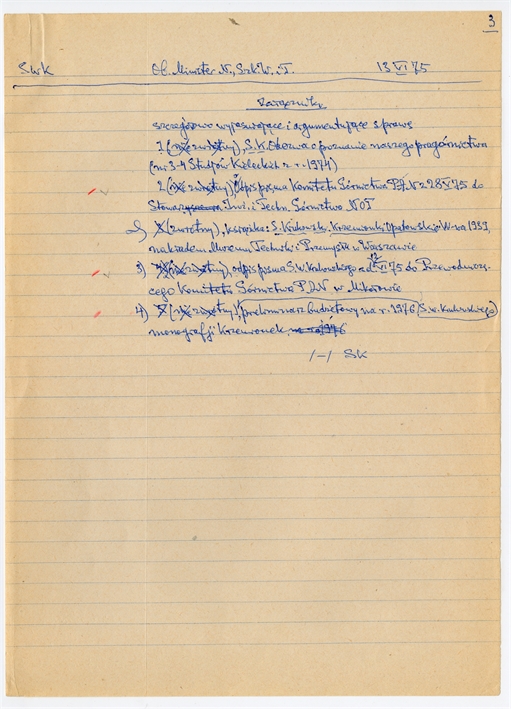 3
SwK Ob. Minister N., Szk. W. i T. 13 VI 75
Załączniki
szczegółowo wyjaśniające i argumentujące sprawę
1 (nie zwrotny), S. K. Obawa o poznanie naszego pragórnictwa
(nr 3-4 Studjów Kieleckich z r. 1974)
2 (nie zwrotny) Odpis pisma Komitetu Górnictwa P.A.N z 28 V 75 do
Stowarzyszen Inż. i Techn. Górnictwa NOT
2) (zwrotny), książka: S. Krukowski, Krzemionki Opatowskie W-wa 1939,
nakładem Muzeum Techniki i Przemysłu w Warszawie
3) (nie zwrotny), odpis pisma S. w. Krukowskiego z d. 12 VI 75 do Przewodniczą-
cego Komitetu Górnictwa P.A.N w Mikołowie
4) (nie zwrotny), preliminarz budżetowy na r. 1976 (S. w. Krukowskiego)
monografji Krzemionek, na 1976
/-/ SK